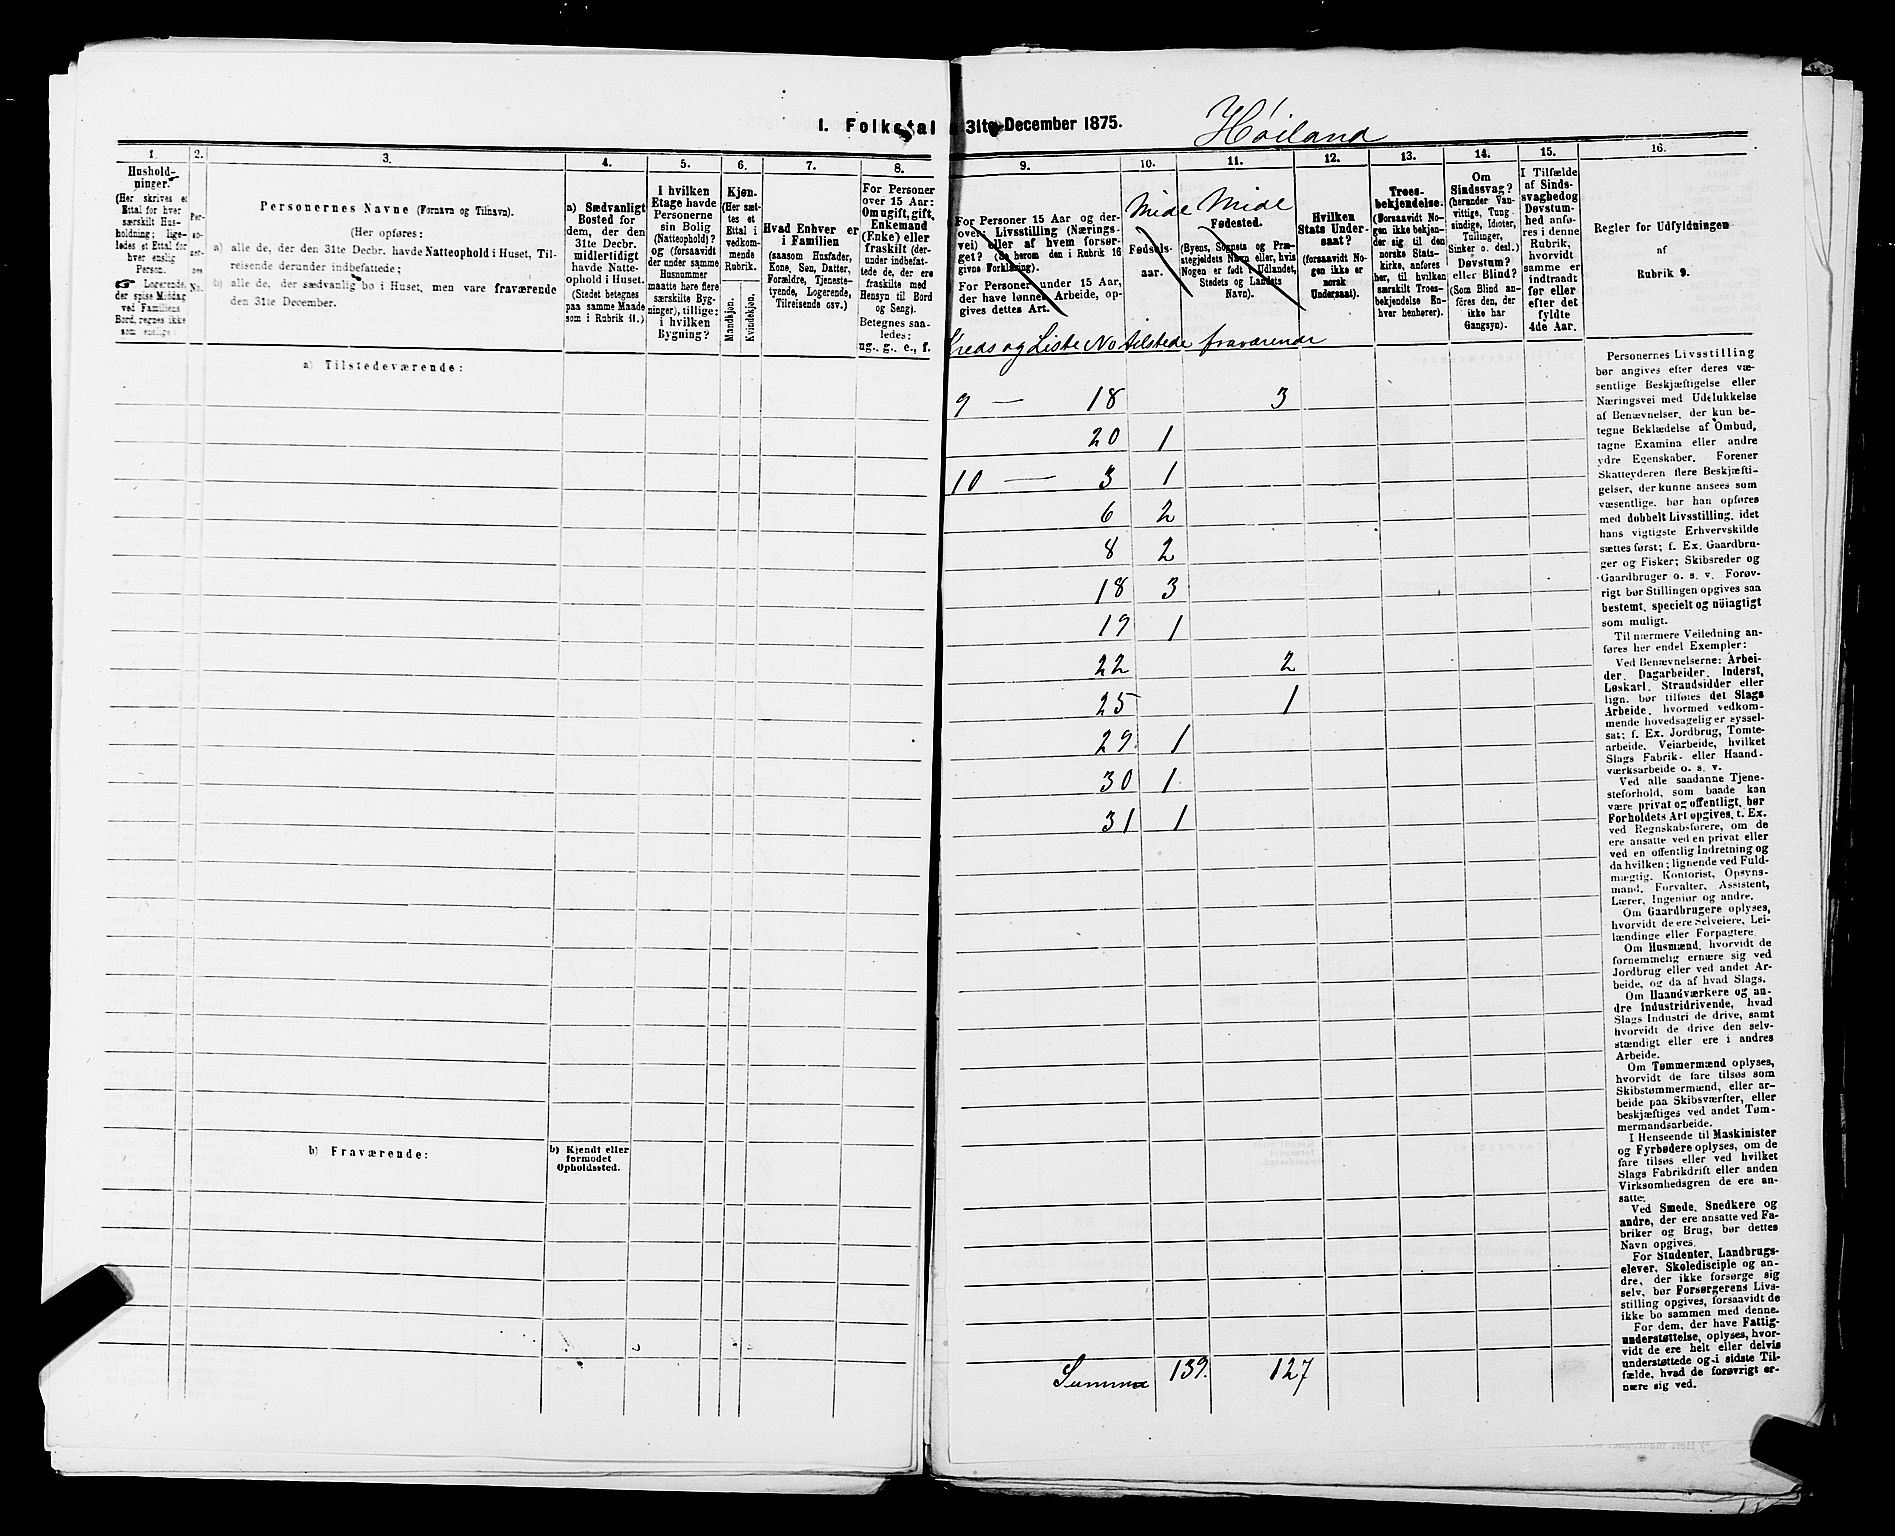 1. Folketal 31te December 1875.
Høiland
1.
Hushold-
ninger.
(Her skrives et
Ettal for hver
særskilt Hus-
holdning; lige-
ledes et Ettal for
hver enslig
Person.
☞ Logerende,
der spise Middag
ved Familiens
Bord, regnes ikke
som enslige.
2.
Per-
so-
ner-
nes
No.
3.
Personernes Navne (Fornavn og Tilnavn).
(Her opføres:
a) alle de, der den 31te Decbr. havde Natteophold i Huset, Til-
reisende derunder indbefattede;
b) alle de, der sædvanlig bo i Huset, men vare fraværende
den 31te December.
4.
a) Sædvanligt
Bosted for
dem, der den
31te Decbr.
midlertidigt
havde Natte-
ophold i Huset.
(Stedet betegnes
paa samme Maade
som i Rubrik 11.)
5.
I hvilken
Etage havde
Personerne
sin Bolig
(Natteophold)?
og (forsaavidt
der under samme
Husnummer
maatte høre flere
særskilte Byg-
ninger), tillige:
i hvilken
Bygning?
6.
Kjøn.
(Her sæt-
tes et
Ettal i
vedkom-
mende
Rubrik.
Mandkjøn.
Kvindekjøn.
7.
Hvad Enhver er
i Familien
(saasom Husfader,
Kone, Søn, Datter,
Forældre, Tjeneste-
tyende, Logerende,
Tilreisende osv.)
8.
For Personer
over 15 Aar:
Om ugift, gift,
Enkemand
(Enke) eller
fraskilt (der-
under indbefat-
tede de, der ere
fraskilte med
Hensyn til Bord
og Seng).
Betegnes saa-
ledes:
ug., g., e., f.
9.
For Personer 15 Aar og der-
over: Livsstilling (Nærings-
vei) eller af hvem forsør-
get? (Se herom den i Rubrik 16
givne Forklaring).
For Personer under 15 Aar,
der have lønnet Arbeide, op-
gives dettes Art.
10.
Midl
Fødsels-
aar.
11.
Midl
Fødested.
(Byens, Sognets og Præ-
stegjeldets Navn eller, hvis
Nogen er født i Udlandet,
Stedets og Landets
Navn).
12.
Hvilken
Stats Under-
saat?
(forsaavidt No-
gen ikke er
norsk
Undersaat).
13.
Troes-
bekjendelse.
(Forsaavidt No-
gen ikke bekjen-
der sig til den
norske Stats-
kirke, anføres
her, til hvilken
særskilt Troes-
bekjendelse En-
hver henhører).
14.
Om
Sindssvag?
(herunder Van-
vittige, Tung-
sindige, Idioter,
Tullinger,
Sinker o. desl.).
Døvstum?
eller Blind?
(Som Blind an-
føres den, der
ikke har
Gangsyn).
15.
I Tilfælde
af Sinds-
svaghed og
Døvstum-
hed anfø-
res i denne
Rubrik,
hvorvidt
samme er
indtraadt
før eller
efter det
fyldte
4de Aar.
16.
Regler for Udfyldningen
af
Rubrik 9.
Kreds og Liste No tilstede fraværende
a) Tilstedeværende:
9 — 18 3
20 1
10 — 3 1
6 2
8 2
18 3
19 1
22 2
25 1
29 1
30 1
31 1
b) Fraværende:
b) Kjendt eller
formodet
Opholdssted.
Summa 139. 127
Personernes Livsstilling
bør angives efter deres væ-
sentlige Beskjæftigelse eller
Næringsvei med Udelukkelse
af Benævnelser, der kun be-
tegne Beklædelse af Ombud,
tagne Examina eller andre
ydre Egenskaber. Forener
Skatteyderen flere Beskjæfti-
gelser, der kunne ansees som
væsentlige, bør han opføres
med dobbelt Livsstilling, idet
hans vigtigste Erhvervskilde
sættes først; f. Ex. Gaardbru-
ger og Fisker; Skibsreder og
Gaardbruger o. s. v. Forøv-
rigt bør Stillingen opgives saa
bestemt, specielt og nöiagtigt
som muligt.
Til nærmere Veiledning an-
føres her endel Exempler:
Ved Benævnelserne: Arbei-
der, Dagarbeider, Inderst,
Løskarl, Strandsidder eller
lign. bør tilføies det Slags
Arbeide, hvormed vedkom-
mende hovedsagelig er syssel-
sat; f. Ex. Jordbrug, Tomte-
arbeide, Veiarbeide, hvilket
Slags Fabrik- eller Haand-
værksarbeide o. s. v.
Ved alle saadanne Tjene-
steforhold, som baade kan
være privat og offentligt, bør
Forholdets Art opgives, t. Ex.
ved Regnskabsførere, om de
ere ansatte ved en privat eller
ved en offentlig Indretning og
da hvilken; lignende ved Fuld-
mægtig, Kontorist, Opsyns-
mand, Forvalter, Assistent,
Lærer, Ingeniør og andre.
Om Gaardbrugere oplyses,
hvorvidt de ere Selveiere, Lei-
lændinge eller Forpagtere.
Om Husmænd, hvorvidt de
fornemmelig ernære sig ved
Jordbrug eller ved andet Ar-
beide, og da af hvad Slags.
Om Haandværkere og an-
dre Industridrivende, hvad
Slags Industri de drive, samt
hvorvidt de drive den selv-
stændigt eller ere i andres
Arbeide.
Om Tømmermænd oplyses,
hvorvidt de fare tilsøs som
Skibstømmermænd, eller ar-
beide paa Skibsværfter, eller
beskjæftiges ved andet Tøm-
mermandsarbeide.
I Henseende til Maskinister
og Fyrbødere oplyses, om de
fare tilsøs eller ved hvilket
Slags Fabrikdrift eller anden
Virksomhedsgren de ere an-
satte.
Ved Smede, Snedkere og
andre, der ere ansatte ved Fa-
briker og Brug, bør dettes
Navn opgives.
For Studenter, Landbrugs-
elever, Skoledisciple og an-
dre, der ikke forsørge sig
selv, bør Forsørgerens Livs-
stilling opgives, forsaavidt de
ikke bo sammen med denne.
For dem, der have Fattig-
understøttelse, oplyses, hvor-
vidt de ere helt eller delvis
understøttede og i sidste Til-
fælde, hvad de forøvrigt er-
nære sig ved.